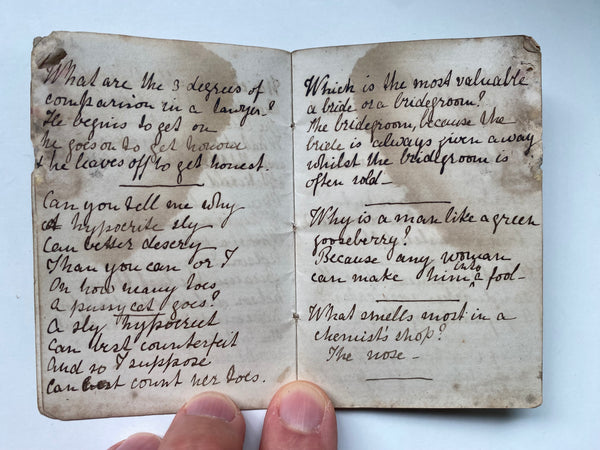 What are the 3 degrees of
comparison in a lawyer?
He begins to get on
he goes on to get honour
& he leaves off to get honest.
Can you tell me why
A hypocrite sly
Can better descry
Than you can or I
On how many toes
A pussycat goes?
A sly hypocrict
Can best counterfeit
And so I suppose
Can best count her toes.
Which is the most valuable
a bride or a bridegroom?
The bridegroom, because the
bride is always given away
whilst the bridegroom is
often sold_
Why is a man like a green
gooseberry?
Because any woman
can make him into a fool_
What smells most in a
chemist's shop?
The nose_